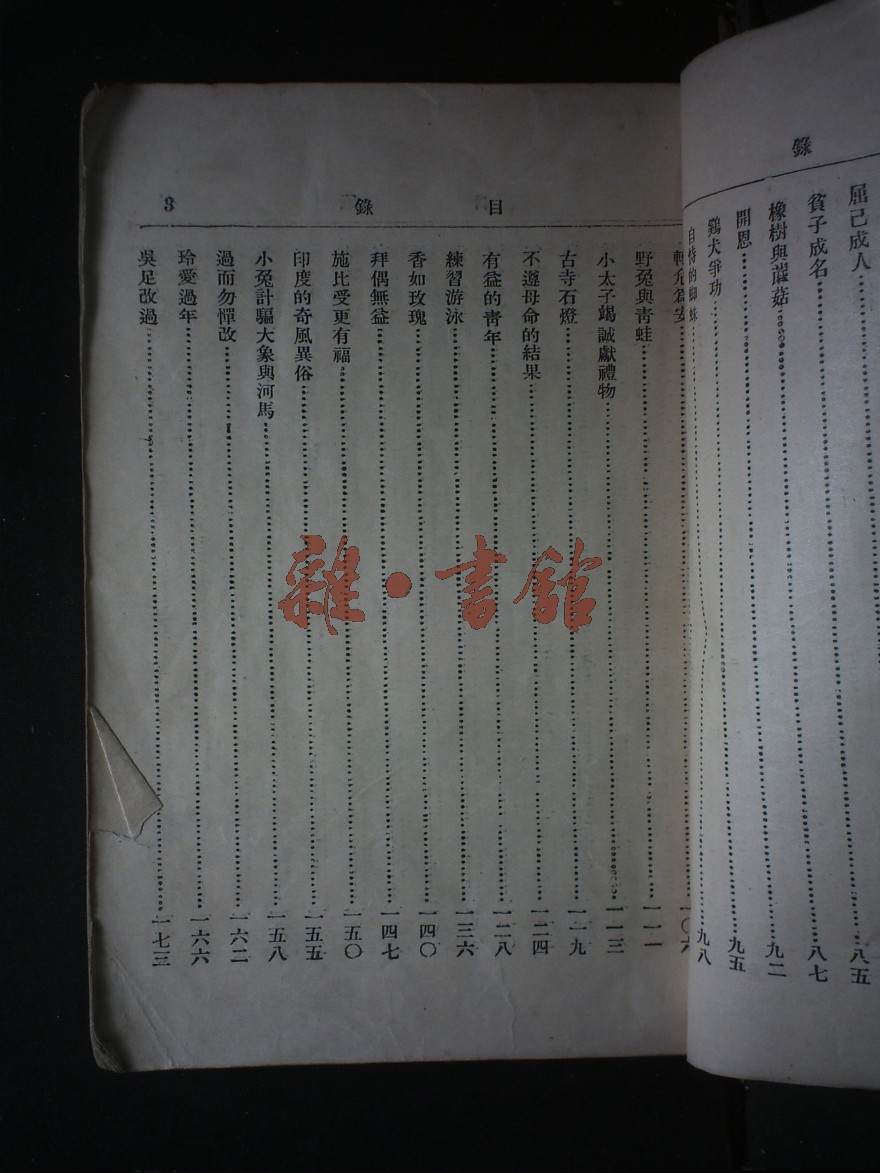 錄
屈己成人……八五
貧子成名……八七
橡樹與蘑菇……九二
開恩……九五
鷄犬爭功……九八
自恃的蜘蛛
目 錄 3
轉危為安……一〇六
野兔與青蛙……一一一
小太子竭誠獻禮物……一一三
古寺石燈……一一九
不遵母命的結果……一二四
有益的青年……一二八
練習游泳……一三六
香如玫瑰……一四〇
拜偶無益……一四七
施比受更有福……一五〇
印度的奇風異俗……一五五
小兔計驅大象與河馬……一五八
過而勿憚改……一六二
玲愛過年……一六六
吳足改過……一七三
雜·書館